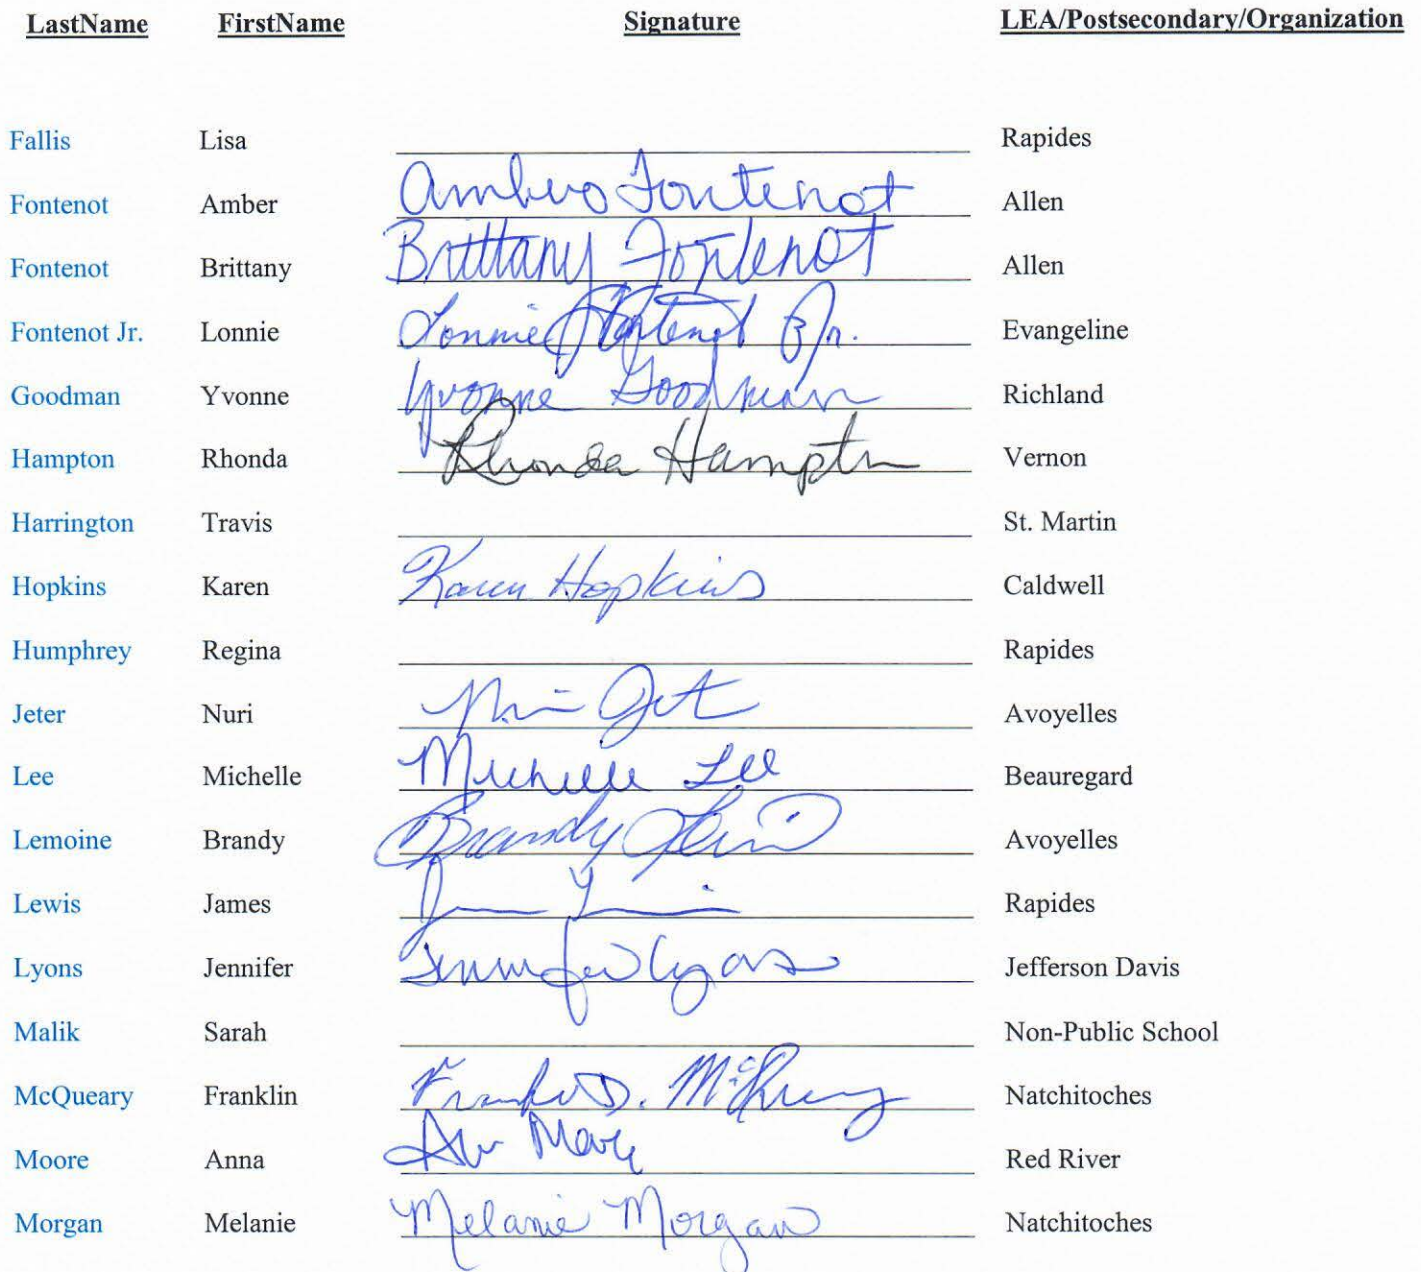 LastName FirstName Signature LEA/Postsecondary/Organization
Fallis Lisa Rapides
Fontenot Amber Amber Fontenot Allen
Fontenot Brittany Brittany Fontenot Allen
Fontenot Jr. Lonnie Lonnie Fontenot Jr. Evangeline
Goodman Yvonne Yvonne Goodman Richland
Hampton Rhonda Rhonda Hampton Vernon
Harrington Travis St. Martin
Hopkins Karen Karen Hopkins Caldwell
Humphrey Regina Rapides
Jeter Nuri Avoyelles
Lee Michelle Michelle Lee Beauregard
Lemoine Brandy Brandy Avoyelles
Lewis James Rapides
Lyons Jennifer Jennifer Lyons Jefferson Davis
Malik Sarah Non-Public School
McQueary Franklin Natchitoches
Moore Anna Red River
Morgan Melanie Melanie Morgan Natchitoches